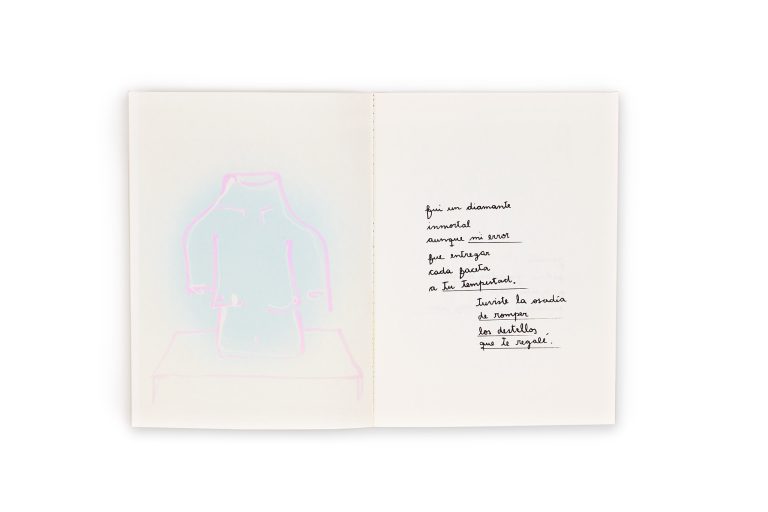 fui un diamante
inmortal
aunque mi error
fue entregar
cada faceta
a tu tempestad.
tuviste la osadía
de romper
los destellos
que te regalé.